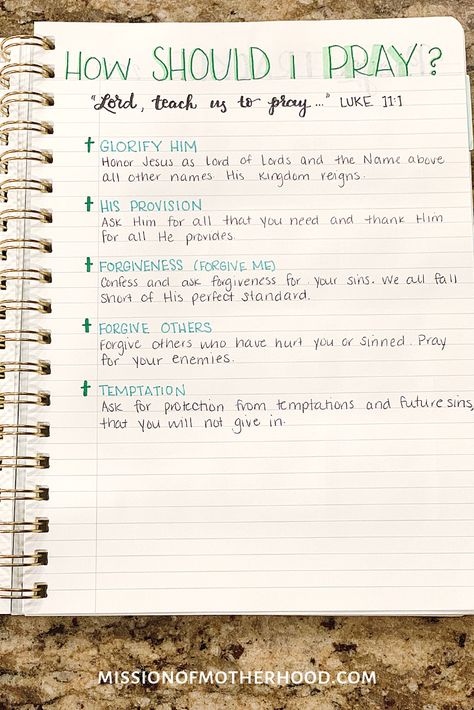 HOW SHOULD I PRAY?
"Lord, teach us to pray..." LUKE 11:1
GLORIFY HIM
Honor Jesus as Lord of Lords and the Name above
all other names. His kingdom reigns.
HIS PROVISION
Ask Him for all that you need and thank Him
for all He provides.
FORGIVENESS (FORGIVE ME)
Confess and ask forgiveness for your sins. We all fall
short of His perfect standard.
FORGIVE OTHERS
Forgive others who have hurt you or sinned. Pray
for your enemies.
TEMPTATION
Ask for protection from temptations and future sins,
that you will not give in.
MISSIONOFMOTHERHOOD.COM